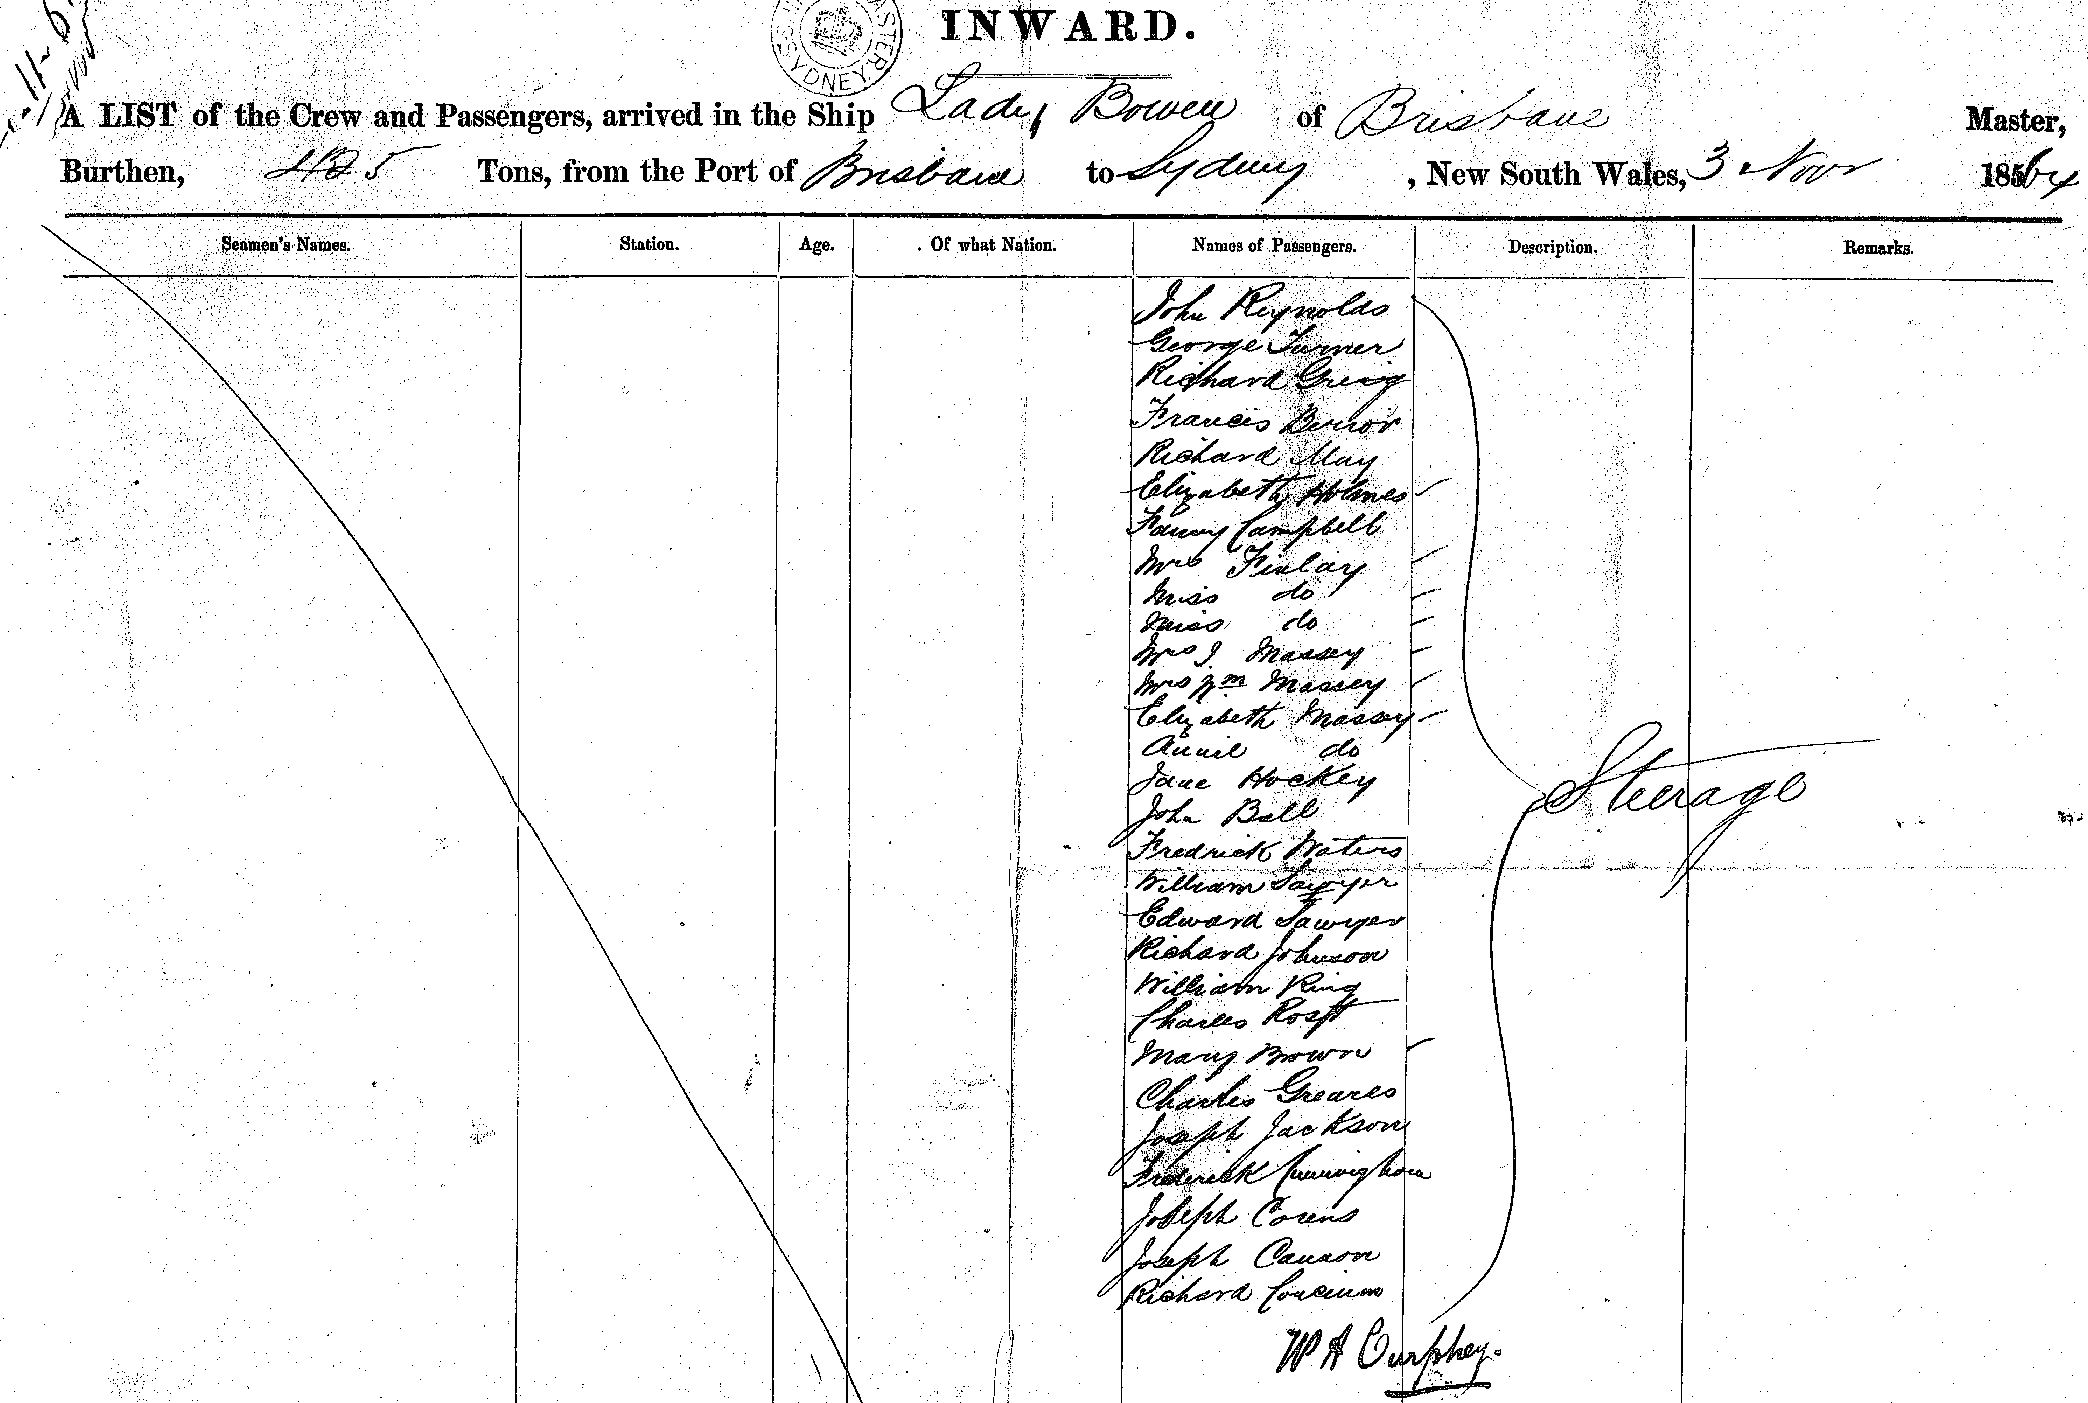 INWARD.
SYDNEY
A LIST of the Crew and Passengers, arrived in the Ship Lady Bowen of Brisbane Master,
Burthen, 425 Tons, from the Port of Brisbane to Sydney, New South Wales, 3 Novr 1864
Seamen's Names. Station. Age. Of what Nation. Names of Passengers. Description. Remarks.
John Reynolds
George Turner
Richard Greig
Francis
Richard May
Elizabeth Holmes
Fanny Campbell
Mrs Finlay
Miss do
Miss do
Mrs J. Massey
Mrs Wm Massey
Elizabeth Massey
Annie do
Jane Hockey
John Ball
Steerage
Fredrick Waters
William Sawyer
Edward Sawyer
Richard Johnson
William King
Charles
Mary Brown
Charles Greaves
Joseph Jackson
Frederick Cunningham
Joseph Corens
Joseph Cannon
Richard
W A Curphey.